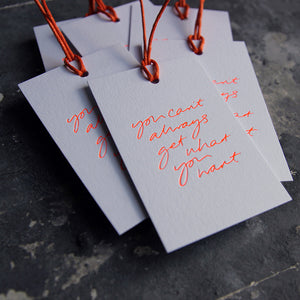 you can't
always
get what
you
want